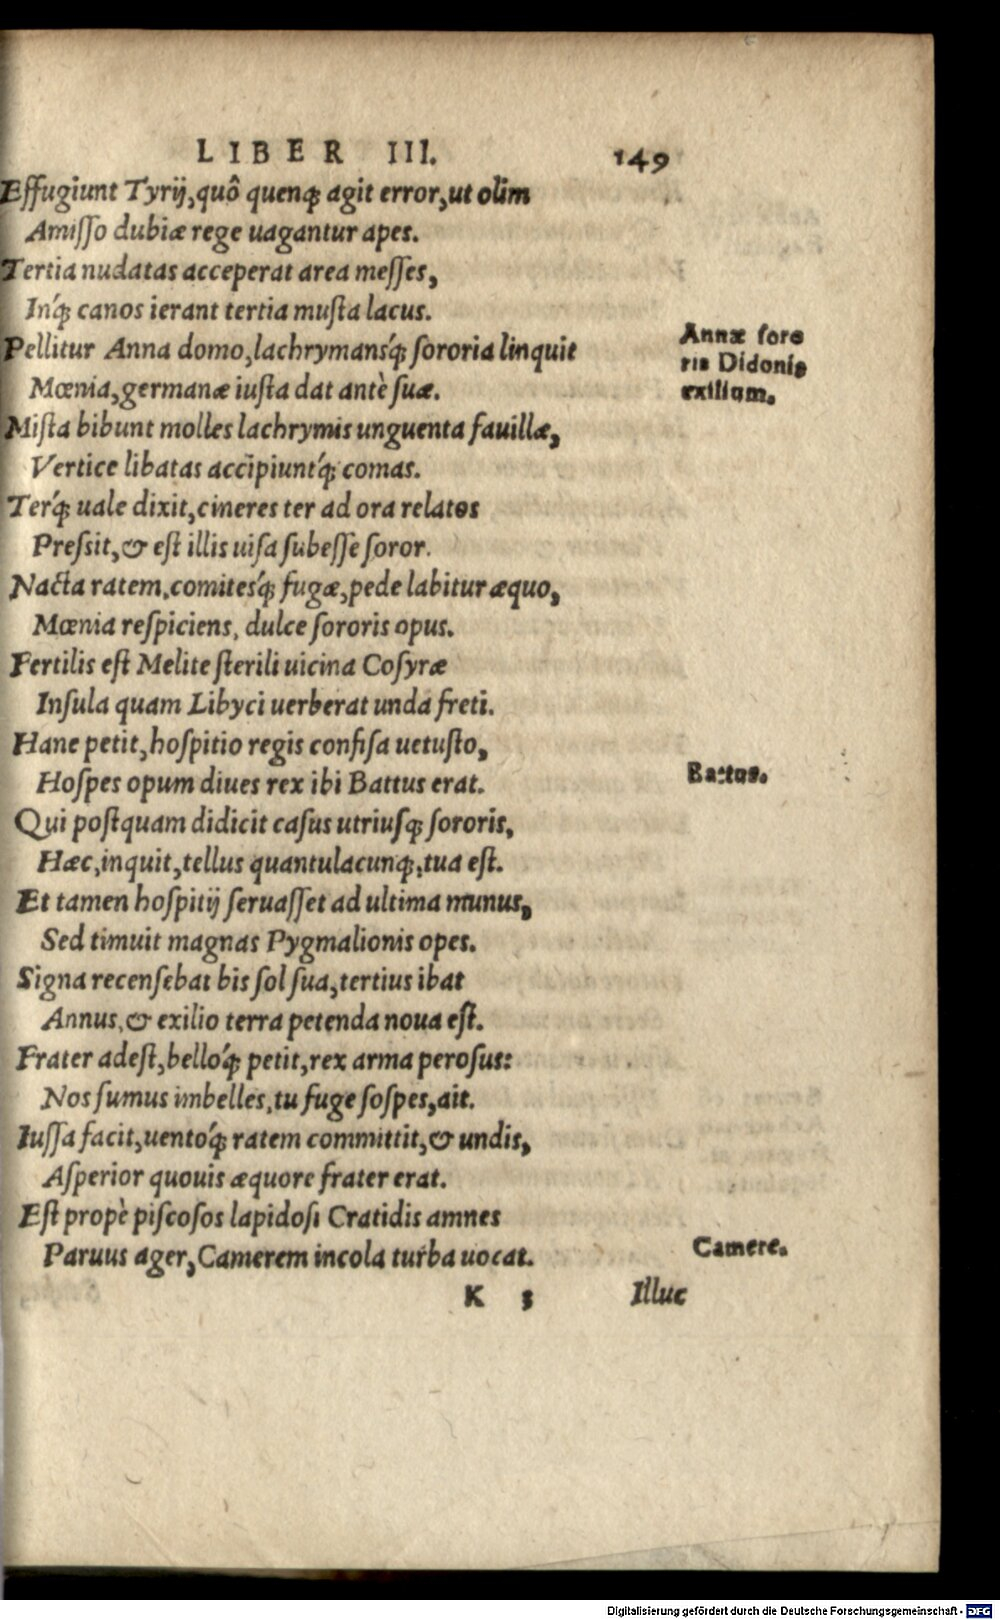 LIBER III. 149
Effugiunt Tyrij, quô quenq; agit error, ut olim
Amiſſo dubiæ rege uagantur apes.
Tertia nudatas acceperat area meſſes,
Inq́; canos ierant tertia muſta lacus.
Pellitur Anna domo, lachrymansq́; ſororia linquit
Annæ soro
ris Didonis
exilium.
Mœnia, germanæ iuſta dat antè ſuæ.
Miſta bibunt molles lachrymis unguenta fauillæ,
Vertice libatas accipiuntq́; comas.
Terq́; uale dixit, cineres ter ad ora relatos
Preſsit, & eſt illis uiſa ſubeſſe ſoror.
Nacta ratem, comitesq́; fugæ, pede labitur æquo,
Mœnia reſpiciens, dulce ſororis opus.
Fertilis eſt Melite ſterili uicina Coſyræ
Inſula quam Libyci uerberat unda freti.
Hanc petit, hoſpitio regis confiſa uetuſto,
Hoſpes opum diues rex ibi Battus erat.
Battus.
Qui poſtquam didicit caſus utriuſq; ſororis,
Hæc, inquit, tellus quantulacunq;, tua eſt.
Et tamen hoſpitij ſeruaſſet ad ultima munus,
Sed timuit magnas Pygmalionis opes.
Signa recenſebat bis ſol ſua, tertius ibat
Annus, & exilio terra petenda noua eſt.
Frater adeſt, belloq́; petit, rex arma peroſus:
Nos ſumus imbelles, tu fuge ſoſpes, ait.
Iuſſa facit, uentoq́; ratem committit, & undis,
Aſperior quouis æquore frater erat.
Eſt propè piſcoſos lapidoſi Cratidis amnes
Paruus ager, Camerem incola turba uocat.
Camere.
K 3 Illuc
Digitalisierung gefördert durch die Deutsche Forschungsgemeinschaft - DFG